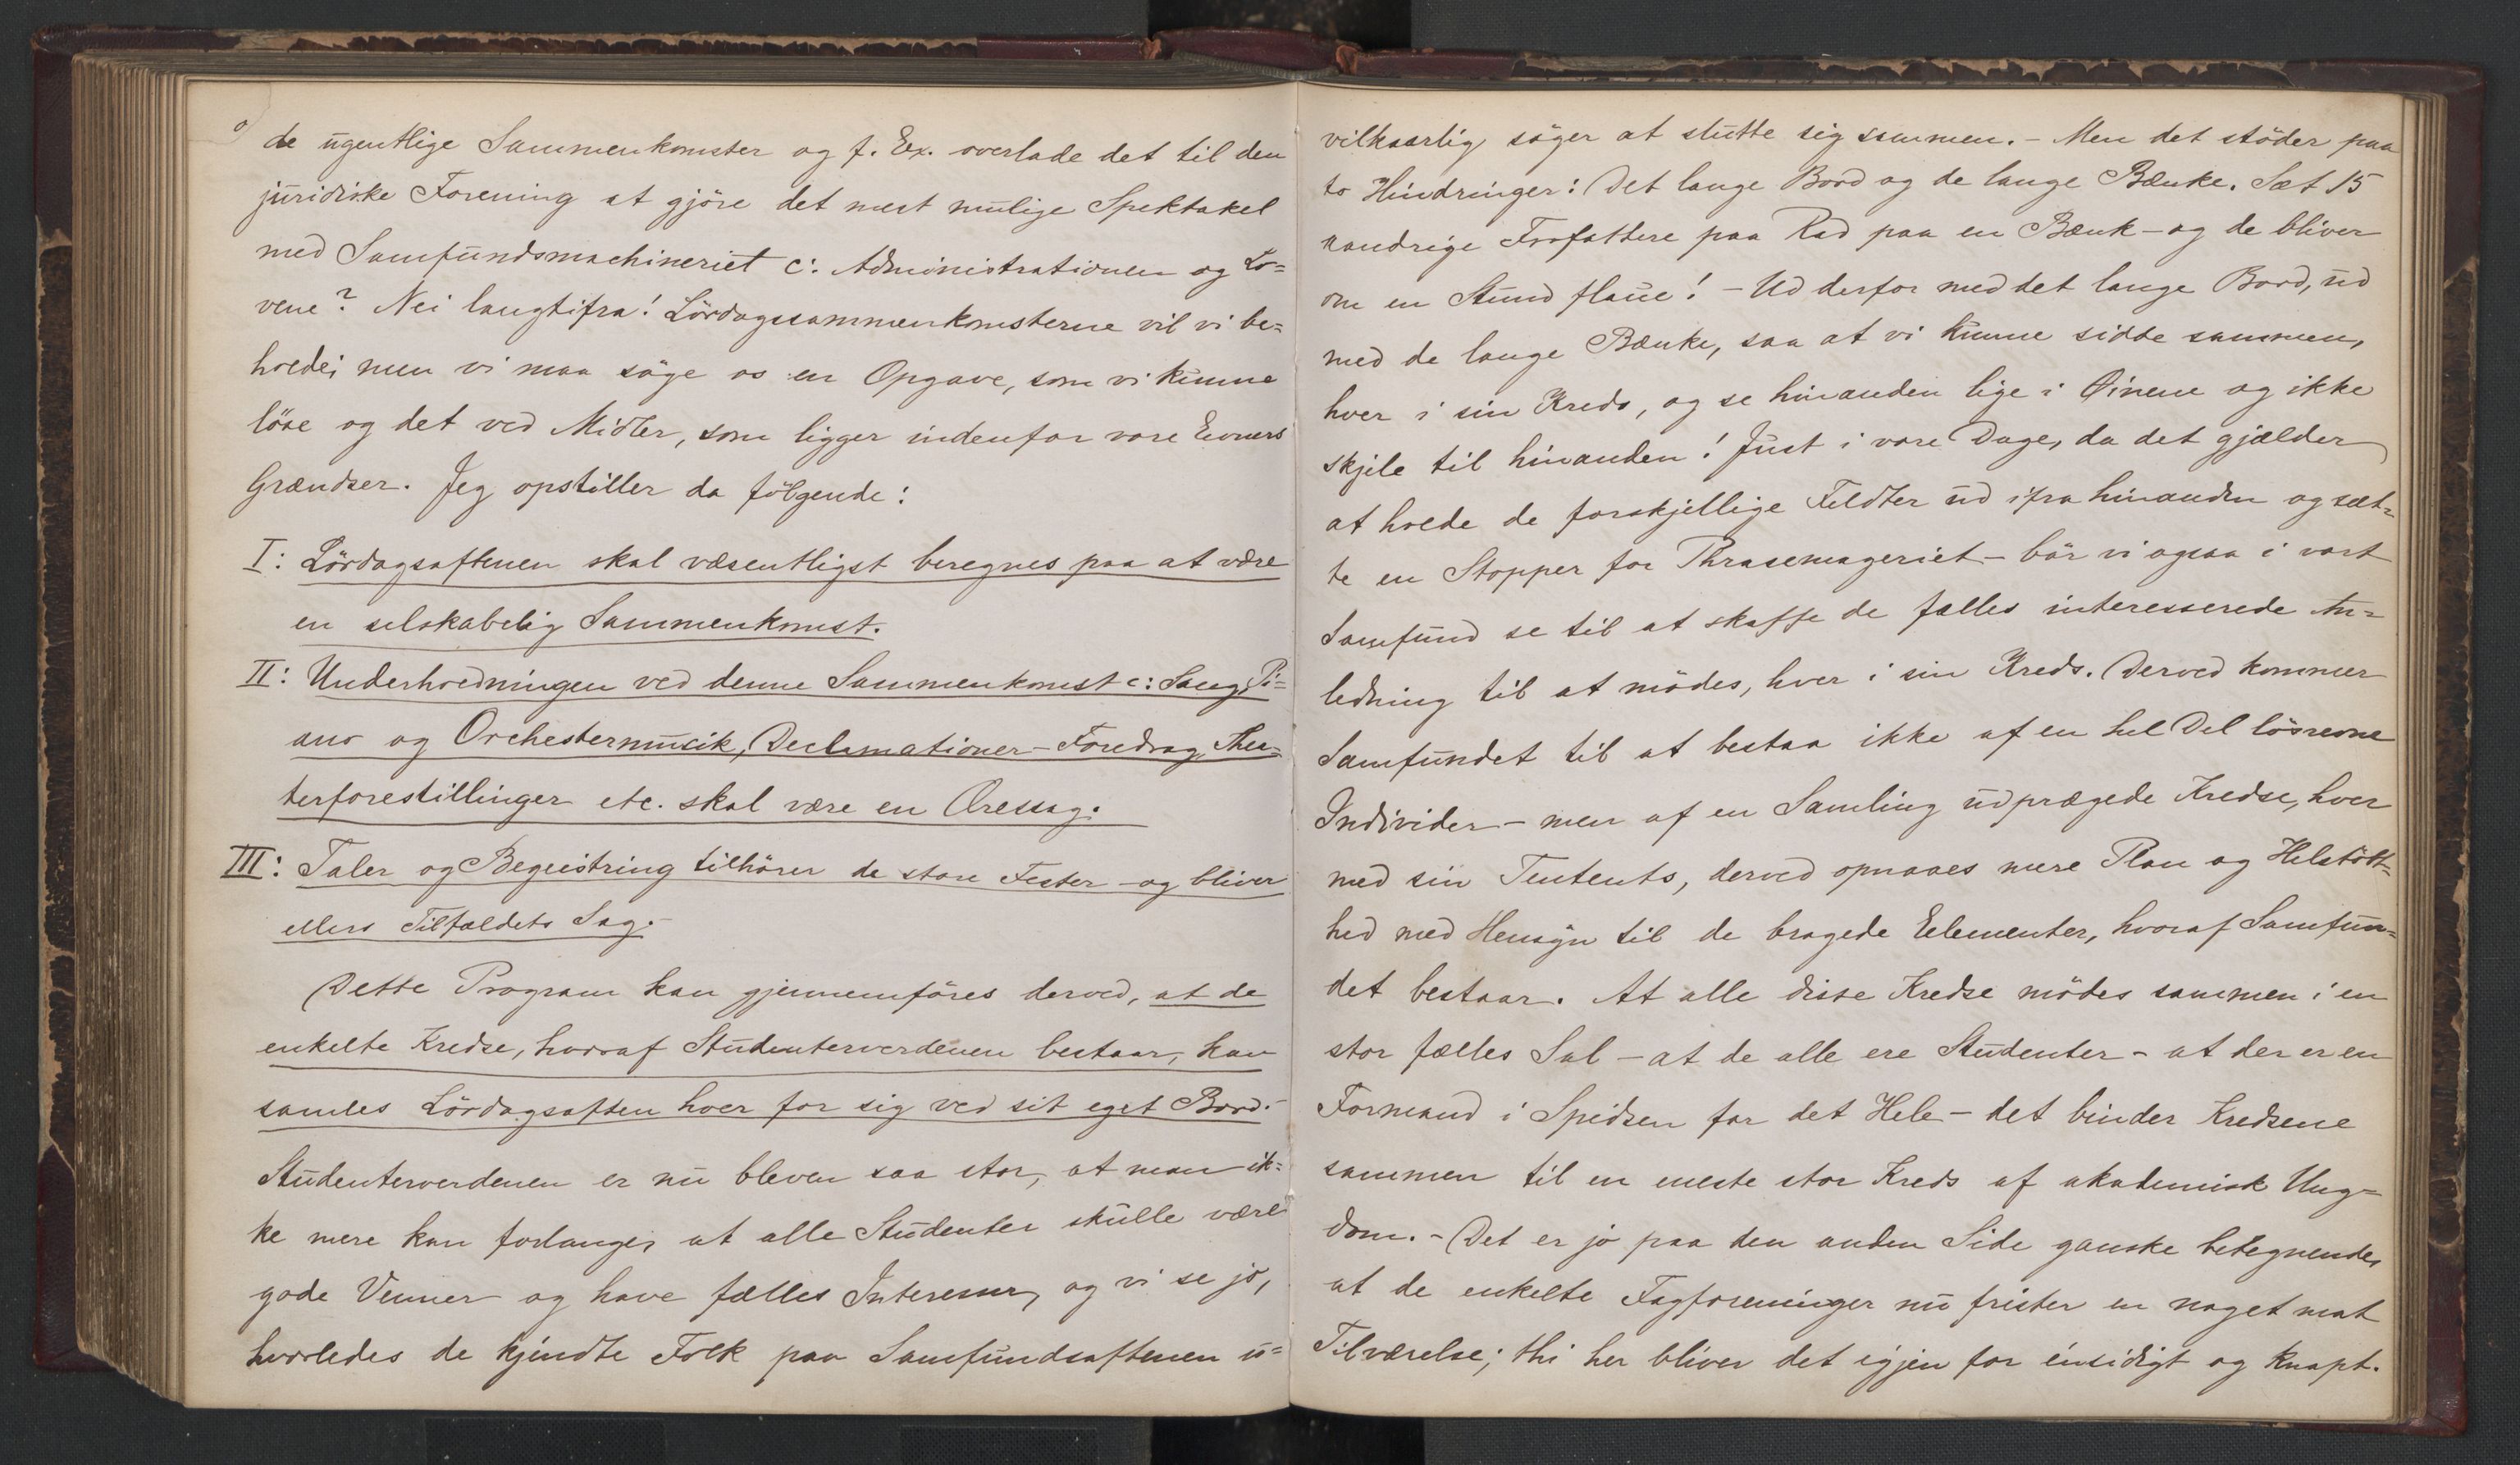 de ugentlige Sammenkomster og f. Ex. overlade det til den
juridiske Forening at gjöre det mest mulige Spektakel
med Samfundsmachineriet ɔ: Administrationen og Lo=
vene? Nei langtifra! Lördagssammenkomsterne vil vi be=
holde; men vi maa söge os en Opgave, som vi kunne
löse og det ved Midler, som ligger indenfor vore Evners
Grændser. Jeg opstiller da fölgende:
I: Lördagsaftenen skal væsentligst beregnes paa at være
en selskabelig Sammenkomst.
II: Underholdningen ved denne Sammenkomst ɔ: Sang, Pi=
ano og Orchestermusik, Declamationer – Foredrag, Thea=
terforestillinger etc. skal være en Æressag.
III: Taler og Begeistring tilhörer de store Fester – og bliver
ellers Tilfældets Sag. –
Dette Program kan gjennemföres derved, at de
enkelte Kredse, hvoraf Studenterverdenen bestaar, kan
samles Lördagsaften hver for sig ved sit eget Bord. –
Studenterverdenen er nu bleven saa stor, at man ik=
ke mere kan forlange, at alle Studenter skulle være
gode Venner og have fælles Interesser, og vi se jo,
hvorledes de kjendte Folk paa Samfundsaftenen u=
vilkaarlig söger at slutte sig sammen. – Men det stöder paa
to Hindringer: Det lange Bord og de lange Bænke. Sæt 15
aandrige Forfattere paa Rad paa en Bænk – og de bliver
om en Stund flaue! – Ud derfor med det lange Bord, ud
med de lange Bænke, saa at vi kunne sidde sammen,
hver i sin Kreds, og se hinanden lige i Øinene og ikke
skjele til hinanden! Just i vore Dage, da det gjælder
at holde de forskjellige Feldter ud ifra hinanden og sæt=
te en Stopper for Phrasemageriet – bör vi ogsaa i vort
Samfund se til at skaffe de fælles interesserede An=
ledning til at mödes, hver i sin Kreds. Derved kommer
Samfundet til at bestaa ikke af en hel Del lösrevne
Individer – men af en Samling udprægede Kredse, hver
med sin Tentents, derved opnaaes mere Plan og Helstöbt=
hed med Hensyn til de bragede Elementer, hvoraf Samfun=
det bestaar. At alle disse Kredse mödes sammen i en
stor fælles Sal – at de alle ere Studenter – at der er en
Formand i Spidsen for det Hele – det binder Kredsene
sammen til en eneste stor Kreds af akademisk Ung=
dom. – Det er jo paa den anden Side ganske betegnende,
at de enkelte Fagforeninger nu frister en noget mat
Tilværelse; thi her bliver det igjen for énsidigt og knapt.